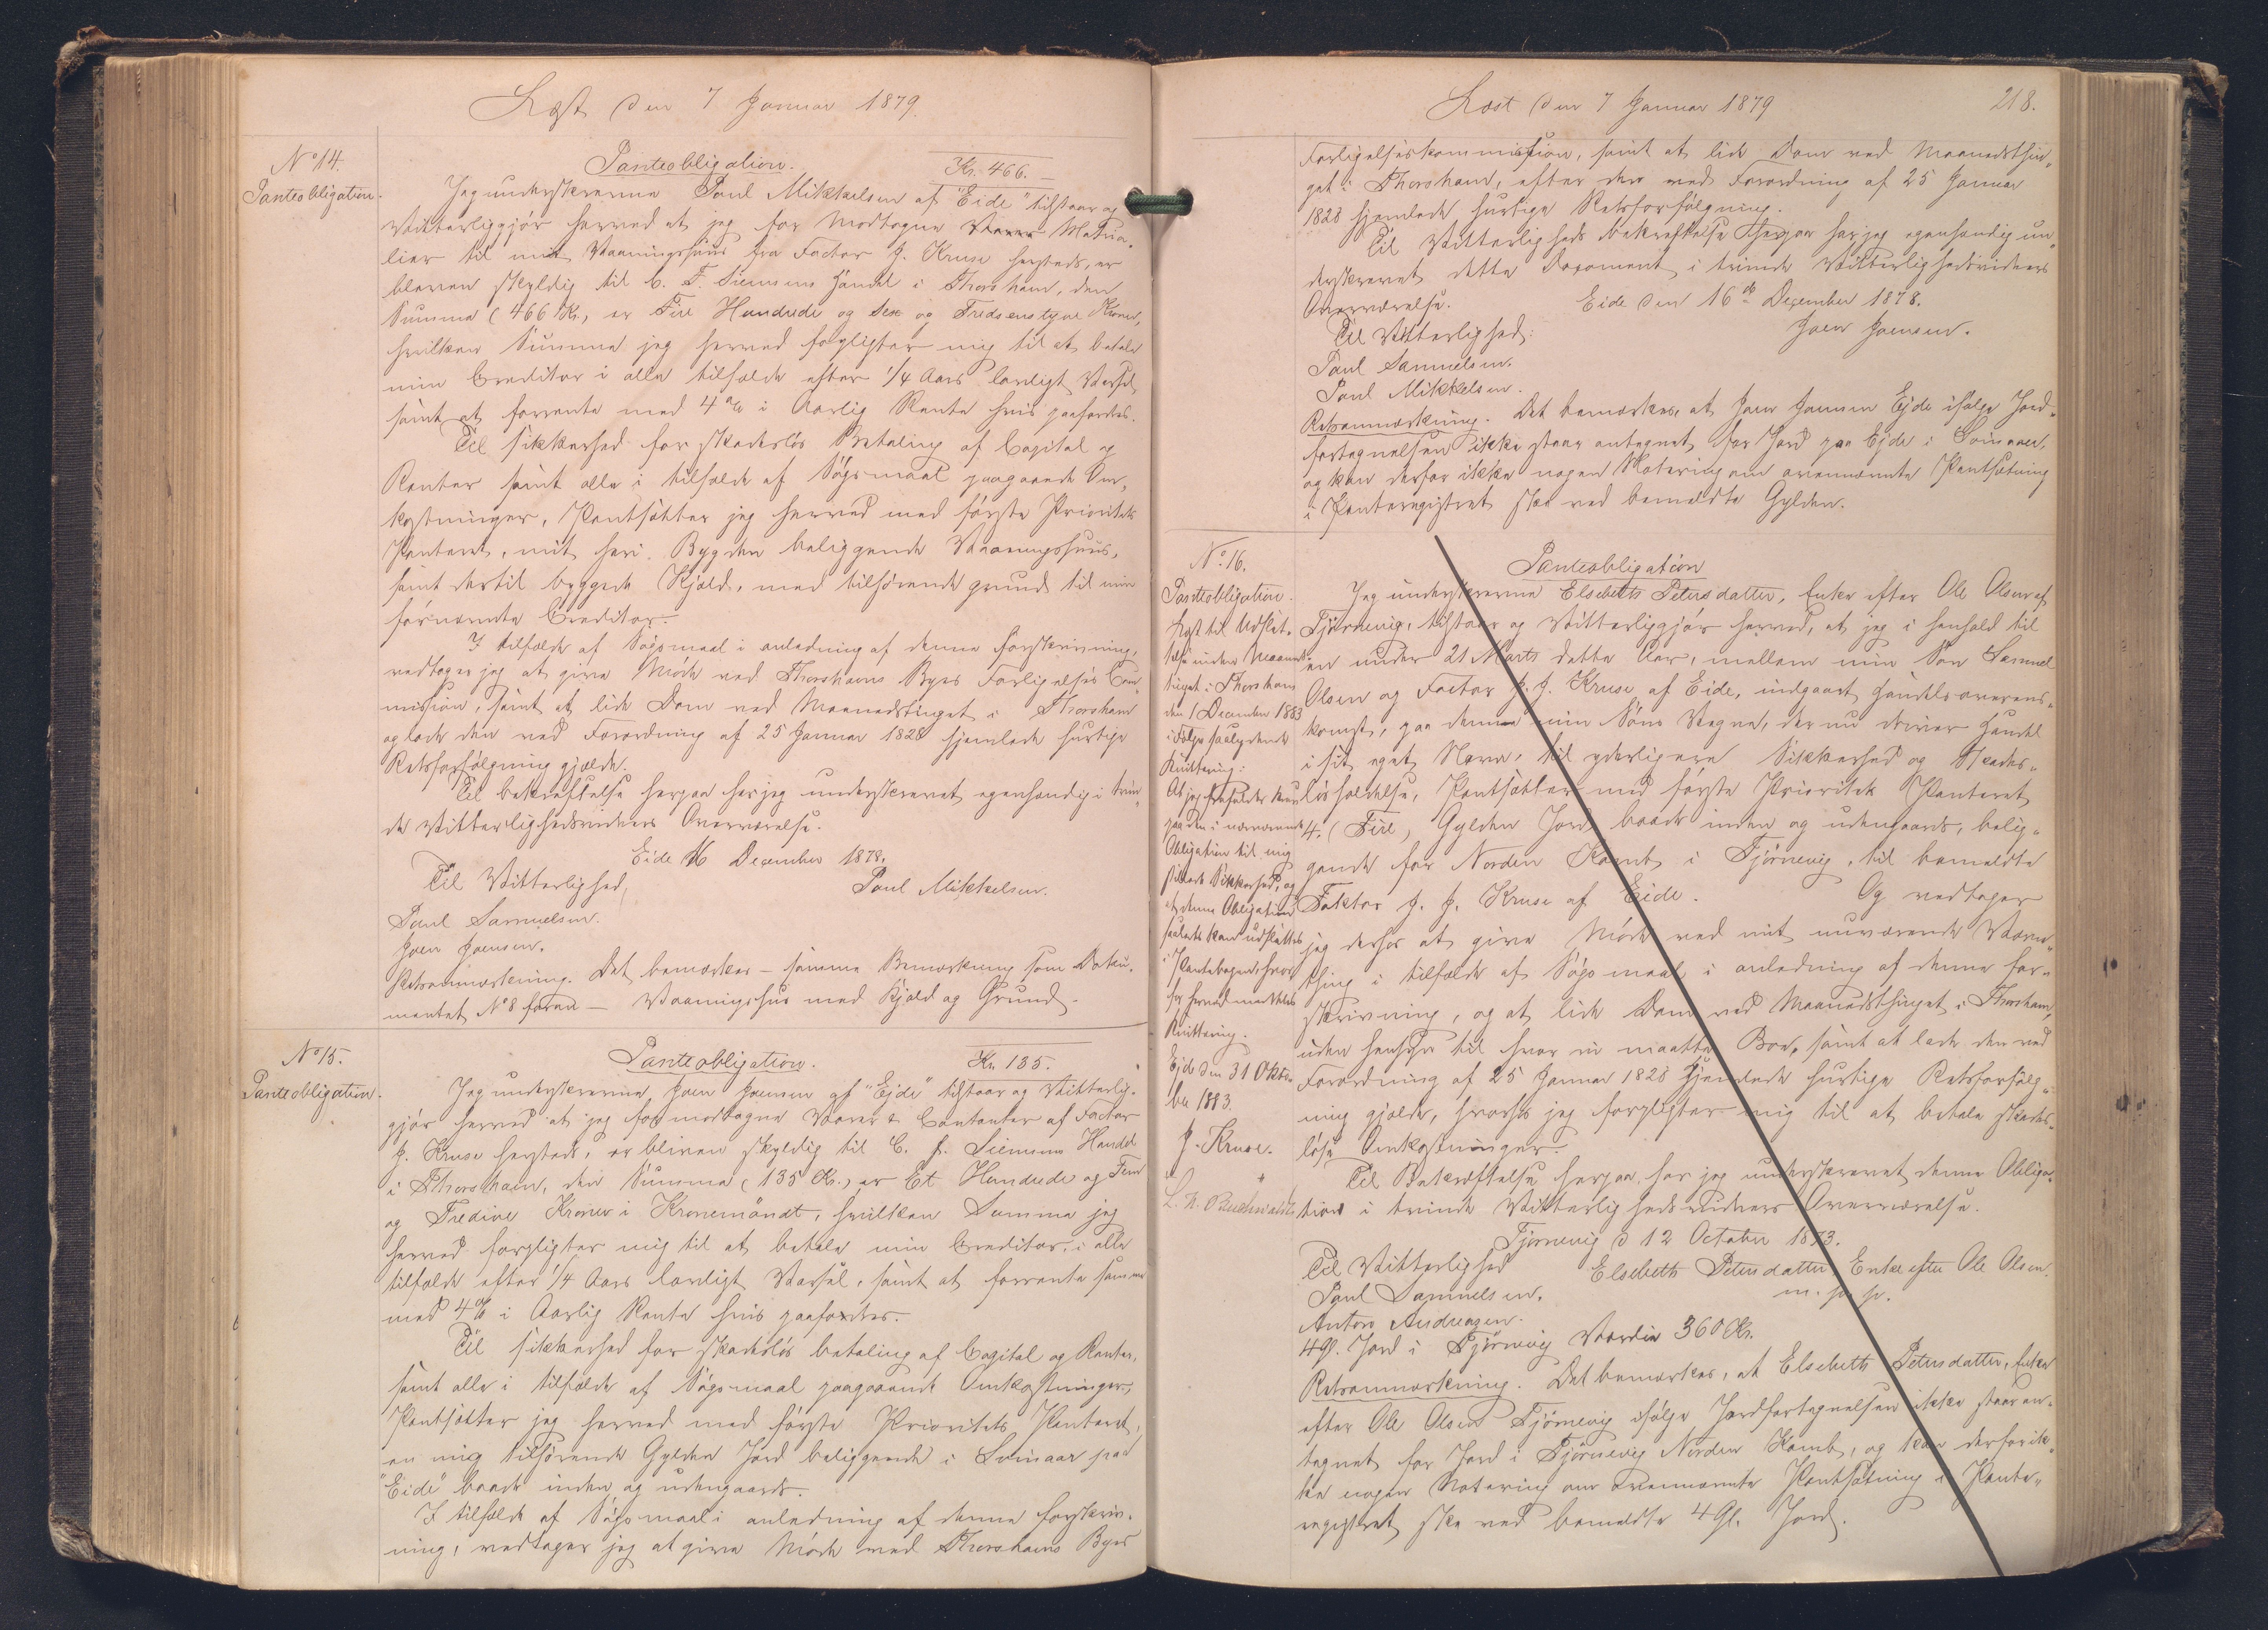 Læst den 7 Januar 1879.
No 14.
Panteobligation.
Panteobligation.
Kr. 466. —
Jeg underskrevne Poul Mikkelsen af "Eide" tilstaar og
vitterliggjør herved at jeg for modtagne Varer Materia-
lier til mit Vaaningshuus fra Factor J. Kruse hersteds, er
bleven skyldig til C. F. Siemsens Handel i Thorshavn, den
Summa (466 Kr, er Fire Hundrede og Sex og Tredsenstyve Kroner,
hvilken Summa jeg herved forpligter mig til at betale
min Creditor i alle tilfælde efter 1/4 Aars lovligt Varsel
samt at forrente med 4 % i Aarlig Rente hvis paafordres.
Til Sikkerhed for skadesløs Betaling af Capital og
Renter samt alle i tilfælde af Søgsmaal paagaaende Om-
kostninger, Pantsætter jeg herved med første Prioritets
Panteret, mit her i Bygden beliggende Vaaningshuus,
samt dertil byggede Kjæld, med tilhørende grund til min
førnævnte Creditor.
I tilfælde af Søgsmaal i anledning af denne forskrivning,
vedtager jeg at give Møde ved Thorshavns Byes Forligelses Com-
mission, samt at lide Dom ved Maanedstinget i Thorshavn
og lade den ved Forordning af 25 Januar 1828 hjemlede hurtige
Retsforfølgning gjælde.
Til bekræftelse herpaa har jeg underskrevet egenhændig i tven-
de Vitterlighedsvidners Overværelse.
Eide 16 December 1878.
Til Vitterlighed,
Poul Mikkelsen.
Poul Samuelsen.
Joen Joensen.
Retsanmærkning. Det bemærkes – samme Bemærkning som Doku-
mentet No 8 foran – Vaaningshus med Kjæld og Grund.
No 15.
Panteobligation.
Panteobligation.
Kr. 135.
Jeg underskrevne Joen Joensen af "Ejde" tilstaar og Vitterlig-
gjør herved at jeg for modtagne Varer & Contanter af Factor
J. Kruse hersteds, er bleven skyldig til C. F. Siemsens Handel
i Thorshavn, den Summa (135 Kr.) er Et Hundrede og Fem
og Tredive Kroner i Kronemöndt, hvilken Summa jeg
herved forpligter mig til at betale min Creditor, i alle
tilfælde efter 1/4 Aars lovligt Varsel, samt at forrente samme
med 4 % i Aarlig Rente hvis paafordres.
Til sikkerhed for skadesløs betaling af Capital og Renter,
samt alle i tilfælde af Søgsmaal paagaaende Omkostninger,
Pantsætter jeg herved med første Prioritets Panteret,
en mig tilhørende Gylden Jord beliggende i Svinaar paa
"Eide" baade inden og udengaards.
I tilfælde af Søgsmaal i anledning af denne forskriv-
ning, vedtager jeg at give Møde ved Thorshavns Byes
Læst den 7 Januar 1879
218.
Forligelseskommission, samt at lide Dom ved Maanedsthin-
get i Thorshavn, efter den ved Forordning af 25 Januar
1828 hjemlede hurtige Retsforfølgning.
Til Vitterligheds bekræftelse herpaa har jeg egenhændig un-
derskrevet dette Document i tvende Vitterlighedsvidners
Overværelse.
Eide den 16de December 1878.
Til Vitterlighed:
Joen Joensen.
Poul Samuelsen.
Poul Mikkelsen.
Retsanmærkning. Det bemærkes, at Joen Joensen Ejde ifølge Jord-
fortegnelsen ikke staar antegnet for Jord paa Ejde i Svinaar,
og kan derfor ikke nogen Notering om ovennævnte Pantsætning
i Panteregistret ske ved bemeldte Gylden.
No. 16.
Panteobligation.
Lyst til Udslet-
telse inden Maaneds-
tinget i Thorshavn
den 1 December 1883
i Følge saalydende
Kvittering:
At jeg frafalder
paa den i nærværende
Obligation til mig
stillede Sikkerhed, og
at denne Obligation
saaledes kan udslettes
i Pantebogen, hvor-
for herved meddeles
Kvittering.
Ejde den 31 Okto-
ber 1883.
J. Kruse.
Panteobligation
Jeg underskrevne Elsebeth Petersdatter, Enke efter Ole Olsen af
Tjørnevig, tilstaar og Vitterliggjør herved, at jeg i henhold til
en under 21 Marts dette Aar, mellem min Søn Samuel
Olsen og Factor J. J. Kruse af Eide, indgaaet Handelsoverens-
komst, paa denne min Søns Vegne, der nu driver Handel
i sit eget Navn, til yderligere Sikkerhed og Skades-
løsholdelse, Pantsætter med første Prioritets Panteret
4. (Fire) Gylden Jord baade inden og udengaards, belig-
gende for Norden Kamb i Tjørnevig, til bemeldte
Faktor J. J. Kruse af Eide. Og vedtager
jeg derfor at give Møde ved mit nuværende Værne-
thing i tilfælde af Søgsmaal i anledning af denne for-
skrivning, og at lide Dom ved Maanedsthinget i Thorshavn,
uden hensyn til hvor vi maatte Boe, samt at lade den ved
Forordning af 25 Januar 1828 hjemlede hurtige Retsforfølg-
ning gjælde, hvorhos jeg forpligter mig til at betale skades-
løse Omkostninger.
Til Bekræftelse herpaa har jeg underskrevet denne Obliga-
tion i tvende Vitterlighedsvidners Overværelse.
Tjørnevig d 12 October 1873.
Til Vitterlighed
Elsebeth Petersdatter, Enke efter Ole Olsen.
m. p. p.
Poul Samuelsen.
Antoro Andreasen.
4 Gl. Jord i Tjørnevig Værdie 360 Kr.
Retsanmærkning. Det bemærkes, at Elsebeth Petersdatter, Enke
efter Ole Olsen Tjørnevig ifølge Jordfortegnelsen ikke staar an-
tegnet for Jord i Tjørnevig Norden Kamb, og kan derfor ik-
ke nogen Notering om ovennævnte Pantsætning i Pante-
registret ske ved bemeldte 4 Gl. Jord.